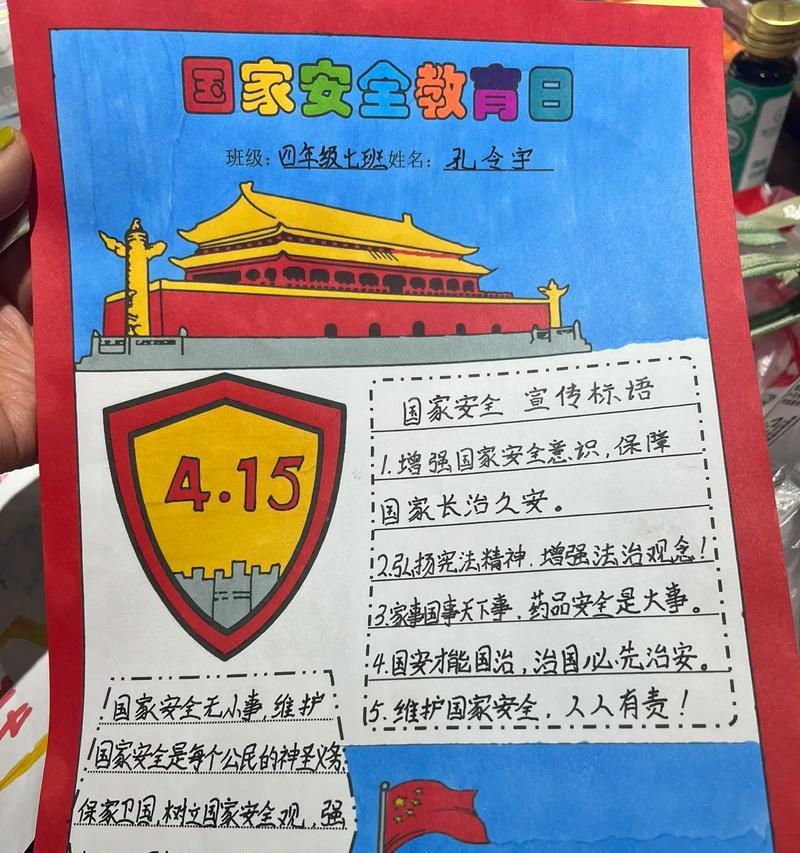 国家安全教育日
班级：四年级七班姓名：孔令宇
4.15
国家安全 宣传标语
1.增强国家安全意识，保障
国家长治久安。
2.弘扬宪法精神，增强法治观念！
3.家事国事天下事，药品安全是大事。
4.国安才能国治，治国必先治安。
5.维护国家安全，人人有责！
国家安全无小事，维护
国家安全是每个公民的神圣义务
保家卫国，树立国家安全观，强